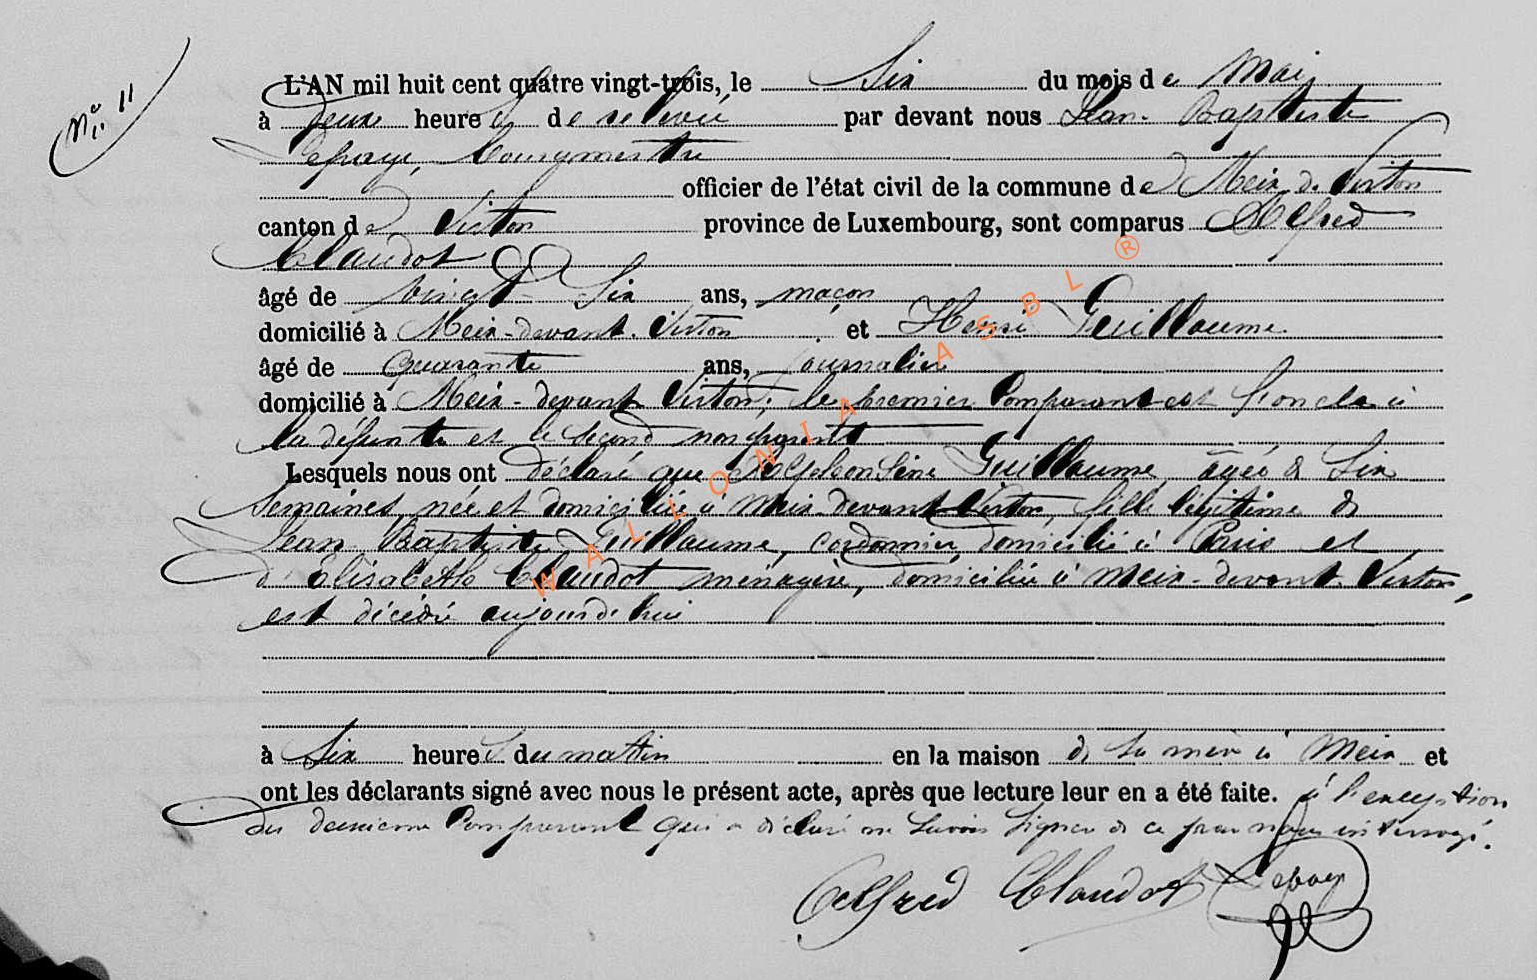 N° 11
L'AN mil huit cent quatre vingt-trois, le Six du mois de Mai
à deux heures de relevée par devant nous Jean Baptiste
Lepage, bourgmestre
officier de l'état civil de la commune de Meix-dt Virton
canton de Virton province de Luxembourg, sont comparus Alfred
Claudot
âgé de vingt-Six ans, maçon
domicilié à Meix-devant-Virton et Henri Guillaume
âgé de quarante ans, journalier
domicilié à Meix-devant Virton, le premier Comparant est l'oncle à
la défunte et le second non parent
Lesquels nous ont déclaré que Guillaume, âgée de Six
Semaines, née et domiciliée à Meix-devant-Virton, fille légitime de
Jean Baptiste Guillaume, cordonnier, domicilié à Paris et
d'Elisabeth Claudot ménagère, domiciliée à Meix-devant-Virton,
est décédée aujourd'hui
à Six heures du matin en la maison de Sa mère à Meix et
ont les déclarants signé avec nous le présent acte, après que lecture leur en a été faite. à l'exception
du deuxième Comparant qui a déclaré ne Savoir Signer de ce par nous interrogé.
Alfred Claudot Lepage
WALLONIA ASBL ®